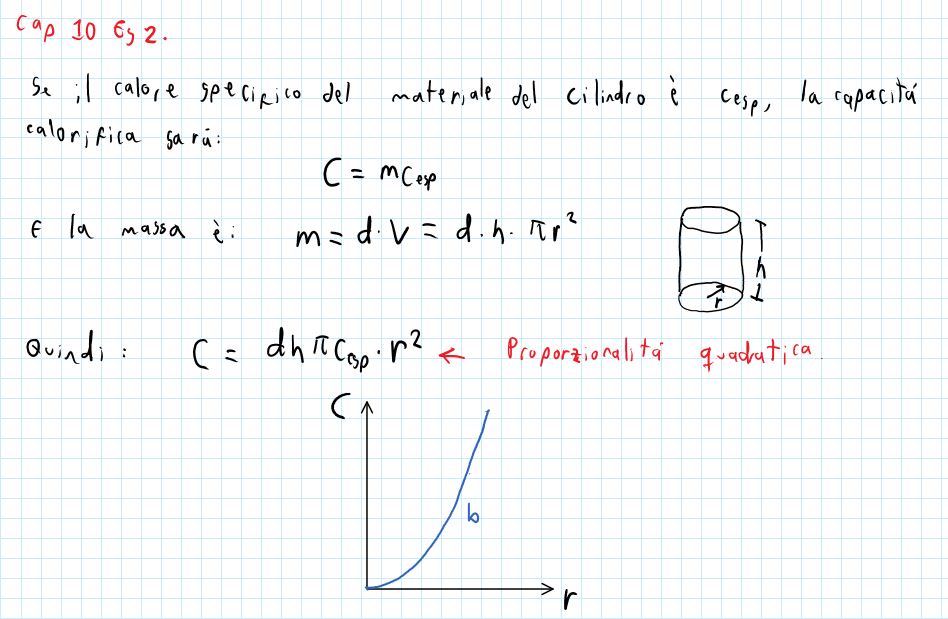 Cap 10 Es 2.
Se il calore specifico del materiale del cilindro è cesp, la capacitá
calorifica sará:
C = mcesp
E la massa è: m = d · V = d · h · πr²
h
r
Quindi: C = dhπcesp · r² ← Proporzionalitá quadratica.
C
b
r